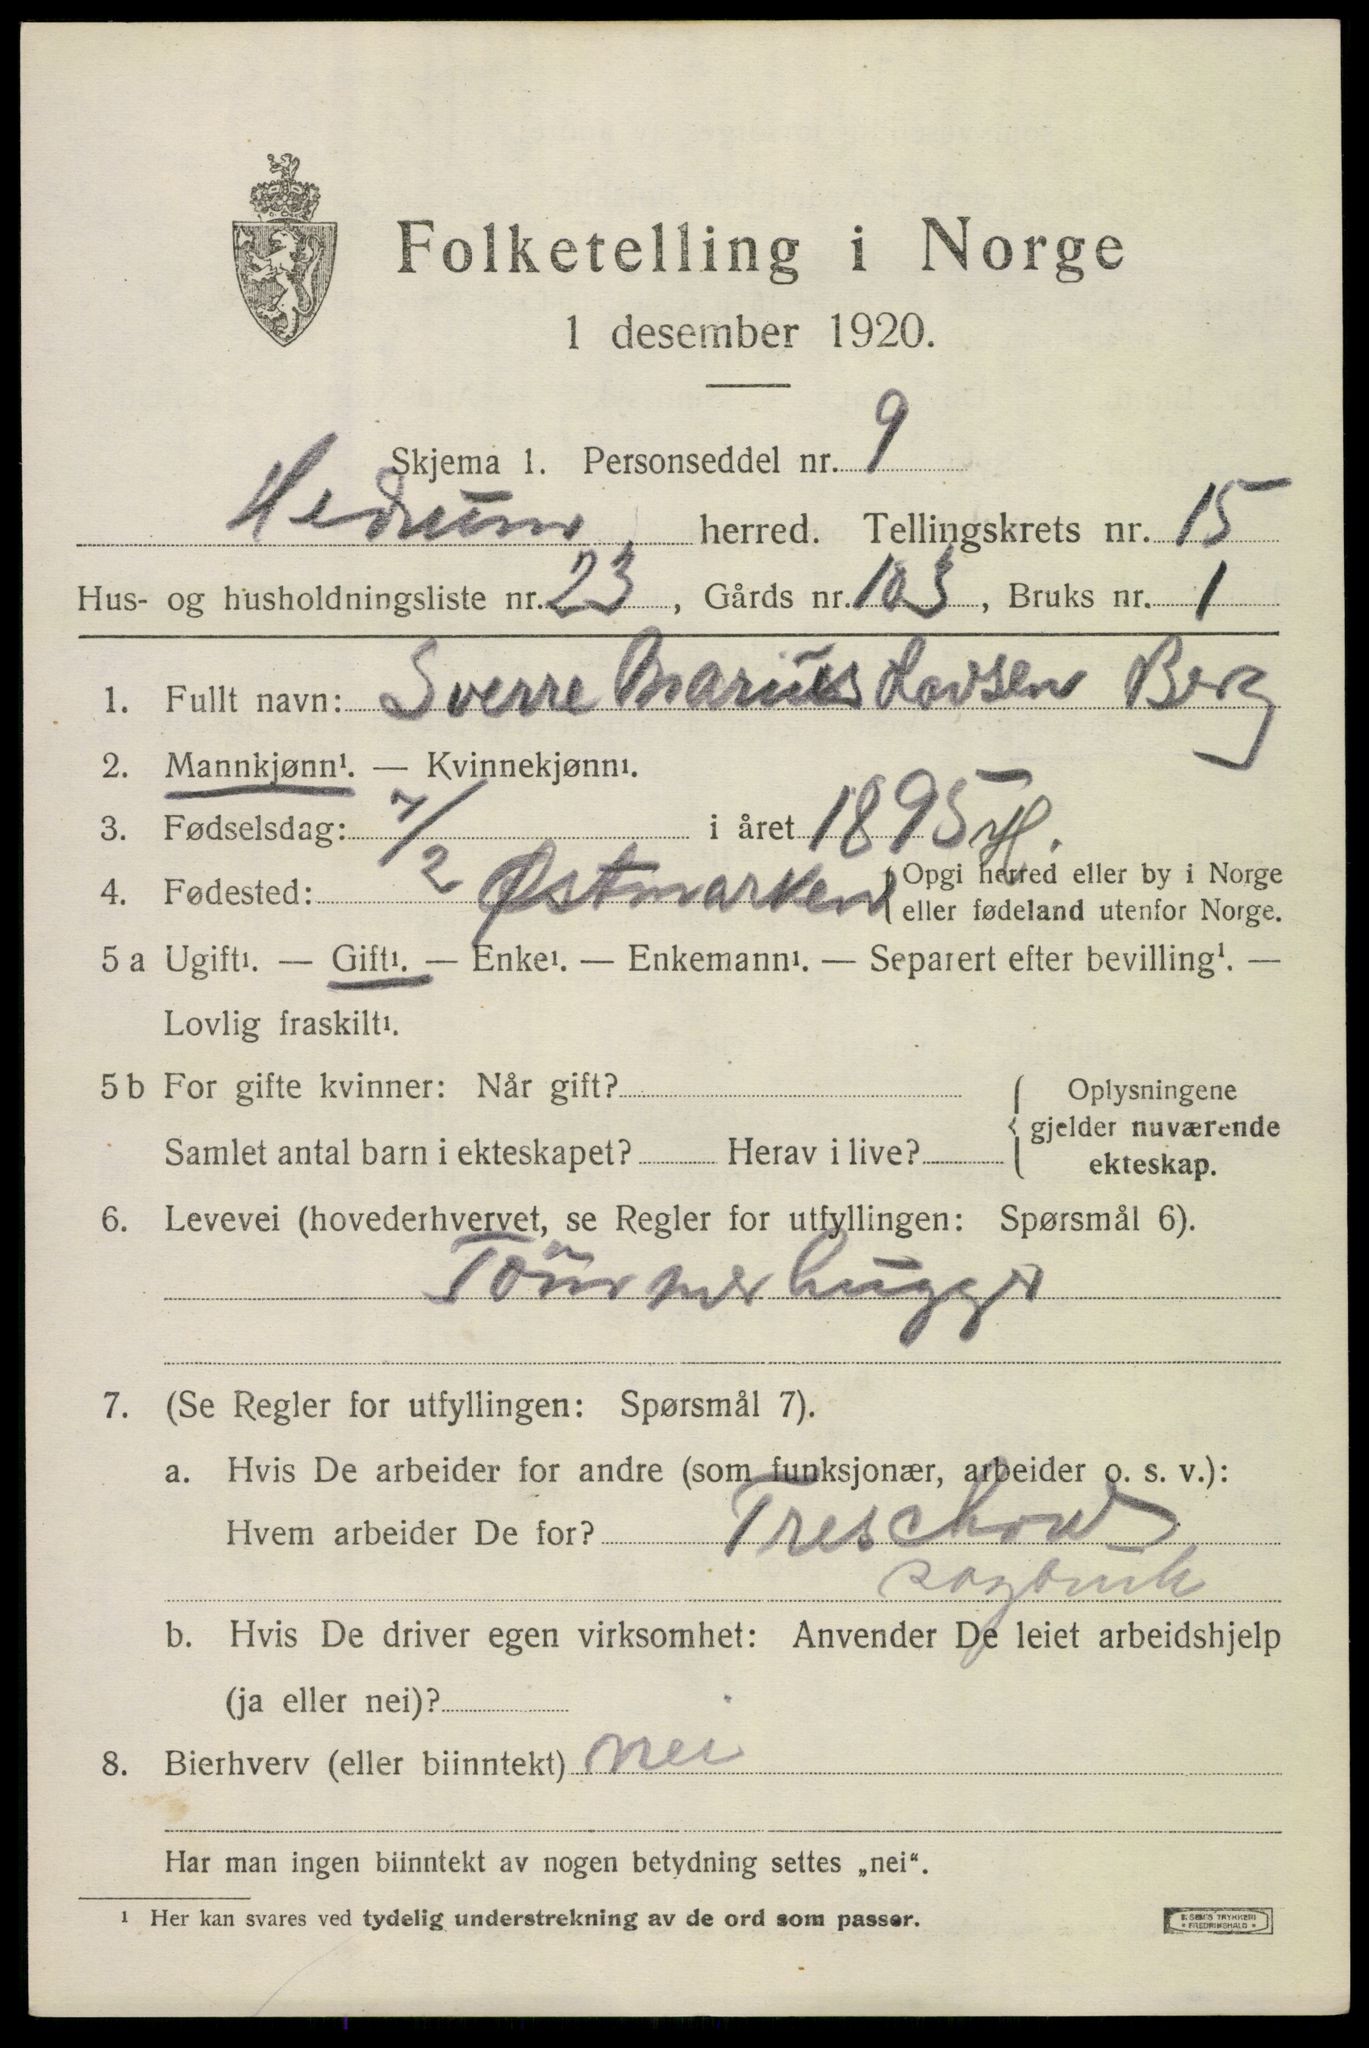 Folketelling i Norge
1 desember 1920.
Skjema 1. Personseddel nr. 9
Hedrum herred. Tellingskrets nr. 15
Hus- og husholdningsliste nr. 23, Gårds nr. 103, Bruks nr. 1
1. Fullt navn: Sverre Marius Berg
2. Mannkjønn¹. — Kvinnekjønn¹.
3. Fødselsdag: 7/2 i året 1895
4. Fødested: Østmarken H. {Opgi herred eller by i Norge
eller fødeland utenfor Norge.
5 a Ugift¹. — Gift¹. — Enke¹. — Enkemann¹. — Separert efter bevilling¹. —
Lovlig fraskilt¹.
5 b For gifte kvinner: Når gift?
Samlet antal barn i ekteskapet? Herav i live?
{ Oplysningene
gjelder nuværende
ekteskap.
6. Levevei (hovederhvervet, se Regler for utfyllingen: Spørsmål 6).
Tömmerhugger
7. (Se Regler for utfyllingen: Spørsmål 7).
a. Hvis De arbeider for andre (som funksjonær, arbeider o. s. v.):
Hvem arbeider De for? Treschow
sagbruk
b. Hvis De driver egen virksomhet: Anvender De leiet arbeidshjelp
(ja eller nei)?
8. Bierhverv (eller biinntekt) nei
Har man ingen biinntekt av nogen betydning settes „nei“.
¹ Her kan svares ved tydelig understrekning av de ord som passer.